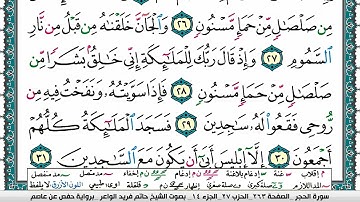 مِن صَلْصَٰلٍ مِّنْ حَمَإٍ مَّسْنُونٍ ٢٦ وَٱلْجَآنَّ خَلَقْنَٰهُ مِن قَبْلُ مِن نَّارِ
ٱلسَّمُومِ ٢٧ وَإِذْ قَالَ رَبُّكَ لِلْمَلَٰٓئِكَةِ إِنِّى خَٰلِقٌۢ بَشَرًا مِّن
صَلْصَٰلٍ مِّنْ حَمَإٍ مَّسْنُونٍ ٢٨ فَإِذَا سَوَّيْتُهُۥ وَنَفَخْتُ فِيهِ مِن
رُّوحِى فَقَعُوا۟ لَهُۥ سَٰجِدِينَ ٢٩ فَسَجَدَ ٱلْمَلَٰٓئِكَةُ كُلُّهُمْ
أَجْمَعُونَ ٣٠ إِلَّآ إِبْلِيسَ أَبَىٰٓ أَن يَكُونَ مَعَ ٱلسَّٰجِدِينَ ٣١
سورة الحجر الصفحة ٢٦٣ الحزب ٢٧ الجزء ١٤ بصوت الشيخ حاتم فريد الواعر برواية حفص عن عاصم